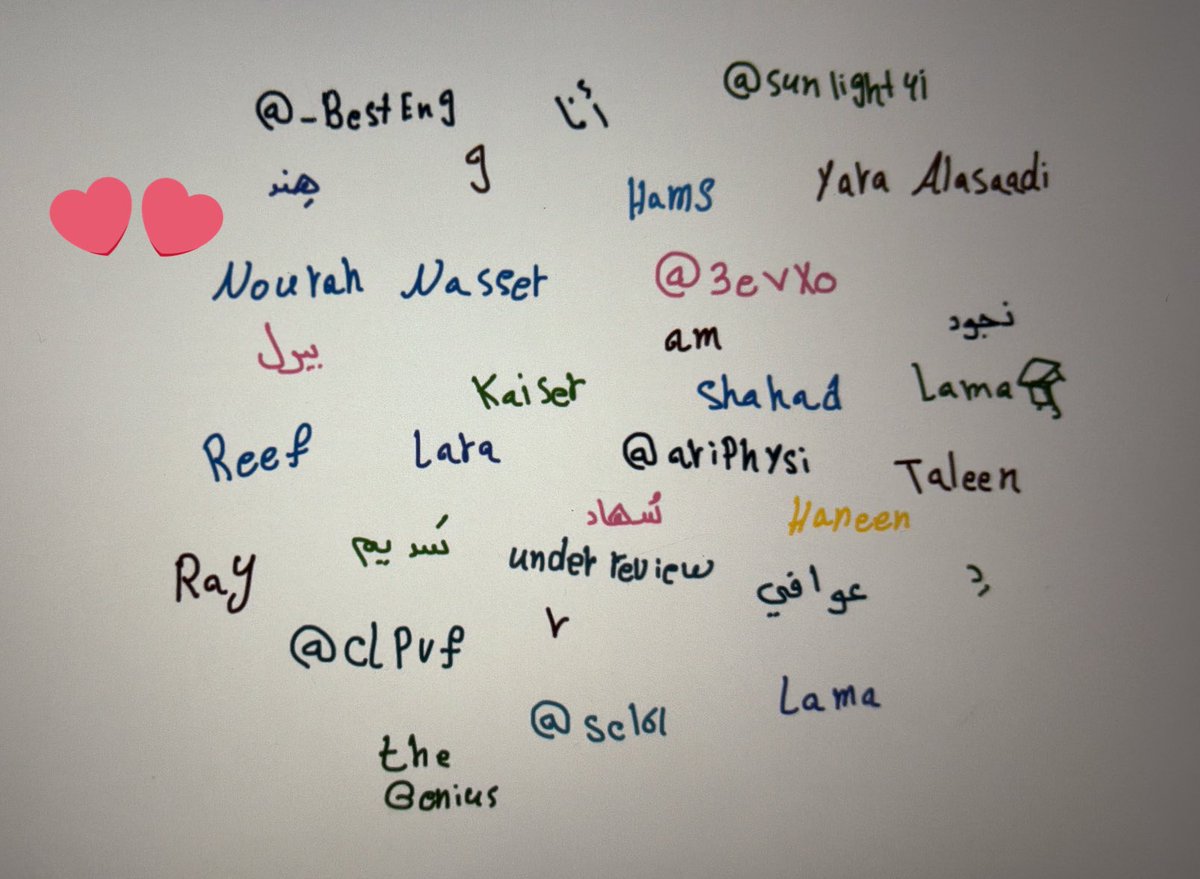 @_BestEng أنا @sunlight4i
هند g Hams Yara Alasaadi
Nourah Nasser @3evXo
بيرل am نجود
Kaiser Shahad Lama
Reef Lara @ariPhysi Taleen
سُهاد Haneen
Ray نَسريم under review عوافي
@clPvf r
@sc161 Lama
the
Genius